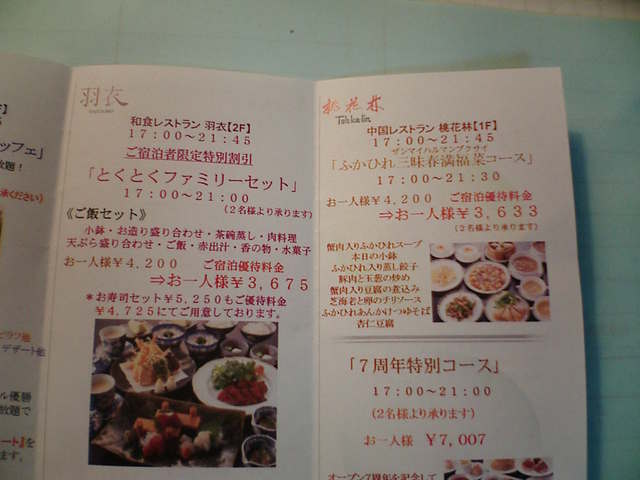 ッフェ」
放題！
承ください)
デザート他
ル優勝
放題で
ート』を
ます。
羽衣
和食レストラン 羽衣【2F】
１７：００～２１：４５
ご宿泊者限定特別割引
「とくとくファミリーセット」
１７：００～２１：００
(２名様より承ります)
《ご飯セット》
小鉢・お造り盛り合わせ・茶碗蒸し・肉料理
天ぷら盛り合わせ・ご飯・赤出汁・香の物・水菓子
お一人様￥４,２００　ご宿泊優待料金
⇒お一人様￥３,６７５
＊お寿司セット￥５,２５０もご優待料金
￥４,７２５にてご用意しております。
桃花林
Toh-ka-lin
中国レストラン 桃花林【1F】
１７：００～２１：４５
ザンマイハルマンプクサイ
「ふかひれ三昧春満福菜コース」
１７：００～２１：３０
お一人様￥４,２００　ご宿泊優待料金
⇒お一人様￥３,６３３
(２名様より承ります)
蟹肉入りふかひれスープ
本日の小鉢
ふかひれ入り蒸し餃子
豚肉と玉葱の炒め
蟹肉入り豆腐の煮込み
芝海老と卵のチリソース
ふかひれあんかけつゆそば
杏仁豆腐
「７周年特別コース」
１７：００～２１：００
(２名様より承ります)
お一人様　￥７,００７
オープン7周年を記念して